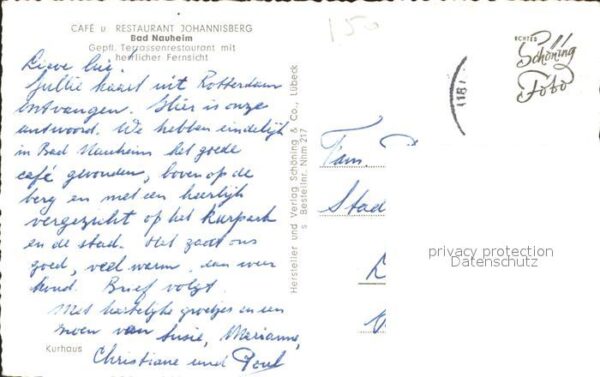 CAFÉ u. RESTAURANT JOHANNISBERG
Bad Nauheim
Gepfl. Terrassenrestaurant mit
herrlicher Fernsicht
Lieve
Jullie kaart uit Rotterdam
ontvangen. Hier is onze
antwoord. We hebben eindelijk
in Bad Nauheim het goede
café gevonden, boven op de
berg en met een heerlijk
vergezicht op het Kurpark
en de stad. Het gaat ons
goed, veel warm, een weer
hond. Brief volgt.
Met hartelijke groetjes en een
zoen van Susie, Marianne,
Christiane und Poul
Kurhaus
Hersteller und Verlag Schöning & Co., Lübeck
s Bestellnr. Nhm 217
150
ECHTES
Schöning
Foto
Fam.
Stad
privacy protection
Datenschutz